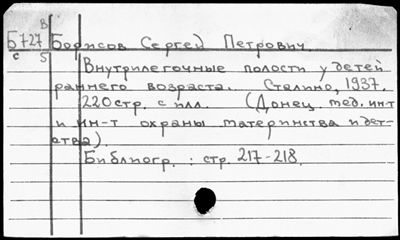 В
Б727 Борисов Сергей Петрович.
с 5
Внутрилегочные полости у детей
раннего возраста. Сталино, 1937.
220 стр. с илл. (Донец. мед. ин-т
и ин-т охраны материнства и дет-
ства).
Библиогр. : стр. 217-218.